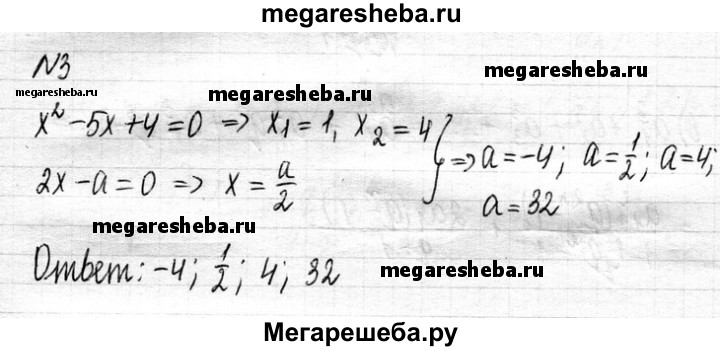 megaresheba.ru
N3
megaresheba.ru megaresheba.ru
x² - 5x + 4 = 0 => x₁ = 1, x₂ = 4
2x - a = 0 => x = a/2
} => a = -4; a = 1/2; a = 4;
a = 32
megaresheba.ru
Ответ: -4; 1/2; 4; 32 megaresheba.ru
Мегарешеба.ру